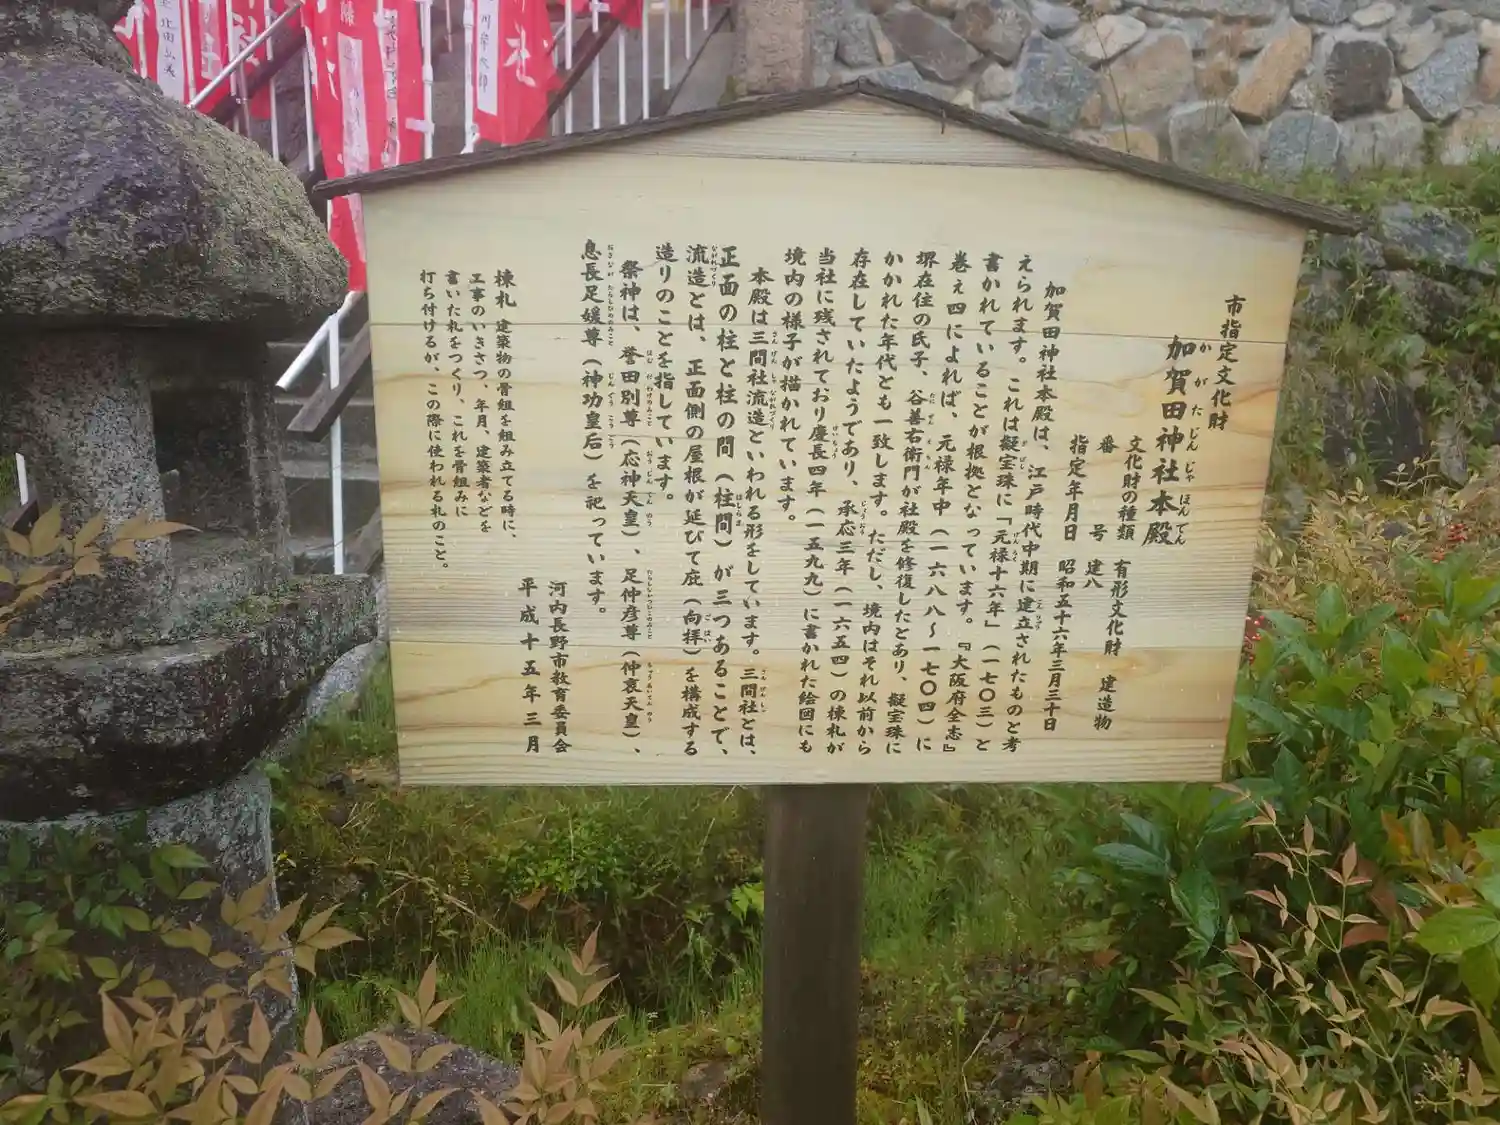 市指定文化財
加賀田神社本殿
かがたじんじゃほんでん
文化財の種類 有形文化財 建造物
番号 建八
指定年月日 昭和五十六年三月三十日
加賀田神社本殿は、江戸時代中期に建立されたものと考
えられます。これは擬宝珠に「元禄十六年」(一七〇三)と
書かれていることが根拠となっています。『大阪府全志』
巻之四によれば、元禄年中(一六八八～一七〇四)に
堺在住の氏子、谷善右衛門が社殿を修復したとあり、擬宝珠に
かかれた年代とも一致します。ただし、境内はそれ以前から
存在していたようであり、承応三年(一六五四)の棟札が
当社に残されており慶長四年(一五九九)に書かれた絵図にも
境内の様子が描かれています。
本殿は三間社流造といわれる形をしています。三間社とは、
正面の柱と柱の間(柱間)が三つあることで、
流造とは、正面側の屋根が延びて庇(向拝)を構成する
造りのことを指しています。
祭神は、誉田別尊(応神天皇)、足仲彦尊(仲哀天皇)、
息長足媛尊(神功皇后)を祀っています。
棟札 建築物の骨組を組み立てる時に、
工事のいきさつ、年月、建築者などを
書いた札をつくり、これを骨組みに
打ち付けるが、この際に使われる札のこと。
河内長野市教育委員会
平成十五年三月